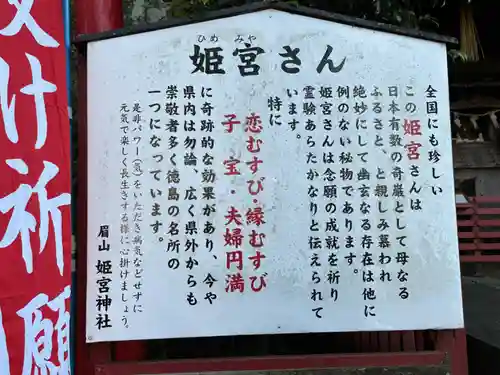 女け祈願
姫宮さん
ひめみや
全国にも珍しい
この姫宮さんは
日本有数の奇巌として母なる
ふるさと、と親しみ慕われ
絶妙にして幽玄なる存在は他に
例のない秘物であります。
姫宮さんは念願の成就を祈り
霊験あらたかなりと伝えられて
います。
特に
恋むすび・縁むすび
子宝・夫婦円満
に奇跡的な効果があり、今や
県内は勿論、広く県外からも
崇敬者多く徳島の名所の
一つになっています。
是非パワー(気)をいただき病気などせずに
元気で楽しく長生きする様に心掛けましょう。
眉山 姫宮神社